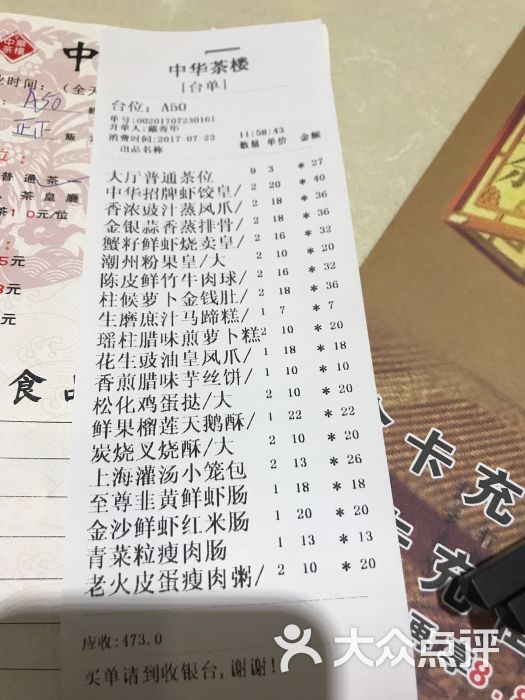 中華茶楼
中
业时间：（全天
A50
正丅
普通茶
、茶皇廳
茶10元/位
5元
3元
元
食品
中华茶楼
[台单]
台位: A50
单号:00201707230161
开单人:戴秀华
消费时间:2017-07-23 11:58:43
出品名称 数量 单价 金额
大厅普通茶位 9 3 *27
中华招牌虾饺皇/ 2 20 *40
香浓豉汁蒸凤爪/ 2 18 *36
金银蒜香蒸排骨/ 2 18 *36
蟹籽鲜虾烧卖皇/ 2 16 *32
潮州粉果皇/大 2 10 *20
陈皮鲜竹牛肉球/ 2 16 *32
柱候萝卜金钱肚/ 2 18 *36
生磨庶汁马蹄糕/ 1 7 *7
瑶柱腊味煎萝卜糕 2 10 *20
花生豉油皇凤爪/ 1 18 *18
香煎腊味芋丝饼/ 1 10 *10
松化鸡蛋挞/大 2 10 *20
鲜果榴莲天鹅酥/ 1 22 *22
炭烧叉烧酥/大 2 10 *20
上海灌汤小笼包 2 13 *26
至尊韭黄鲜虾肠 1 18 *18
金沙鲜虾红米肠 1 20 *20
青菜粒瘦肉肠 1 13 *13
老火皮蛋瘦肉粥/ 2 10 *20
应收:473.0
买单请到收银台,谢谢!
卡充
卡充
8.8
大众点评